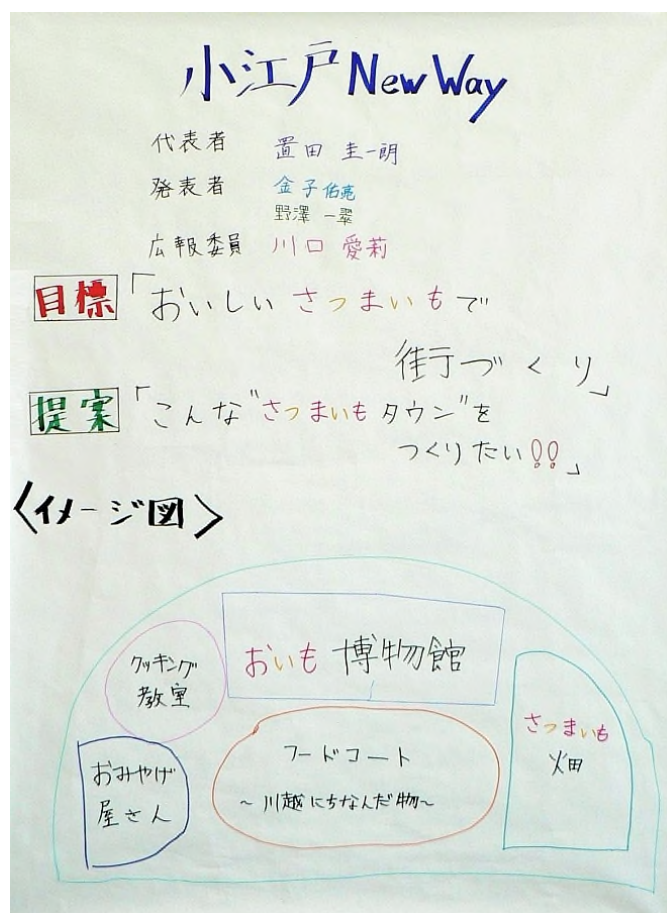 小江戸 New Way
代表者 置田 圭一朗
発表者 金子佑亮
野澤 一翠
広報委員 川口 愛莉
目標「おいしい さつまいもで
街づくり」
提案「こんな"さつまいもタウン"を
つくりたい!!」
〈イメージ図〉
おいも 博物館
クッキング
教室
さつまいも
畑
おみやげ
屋さん
フードコート
~川越にちなんだ物~